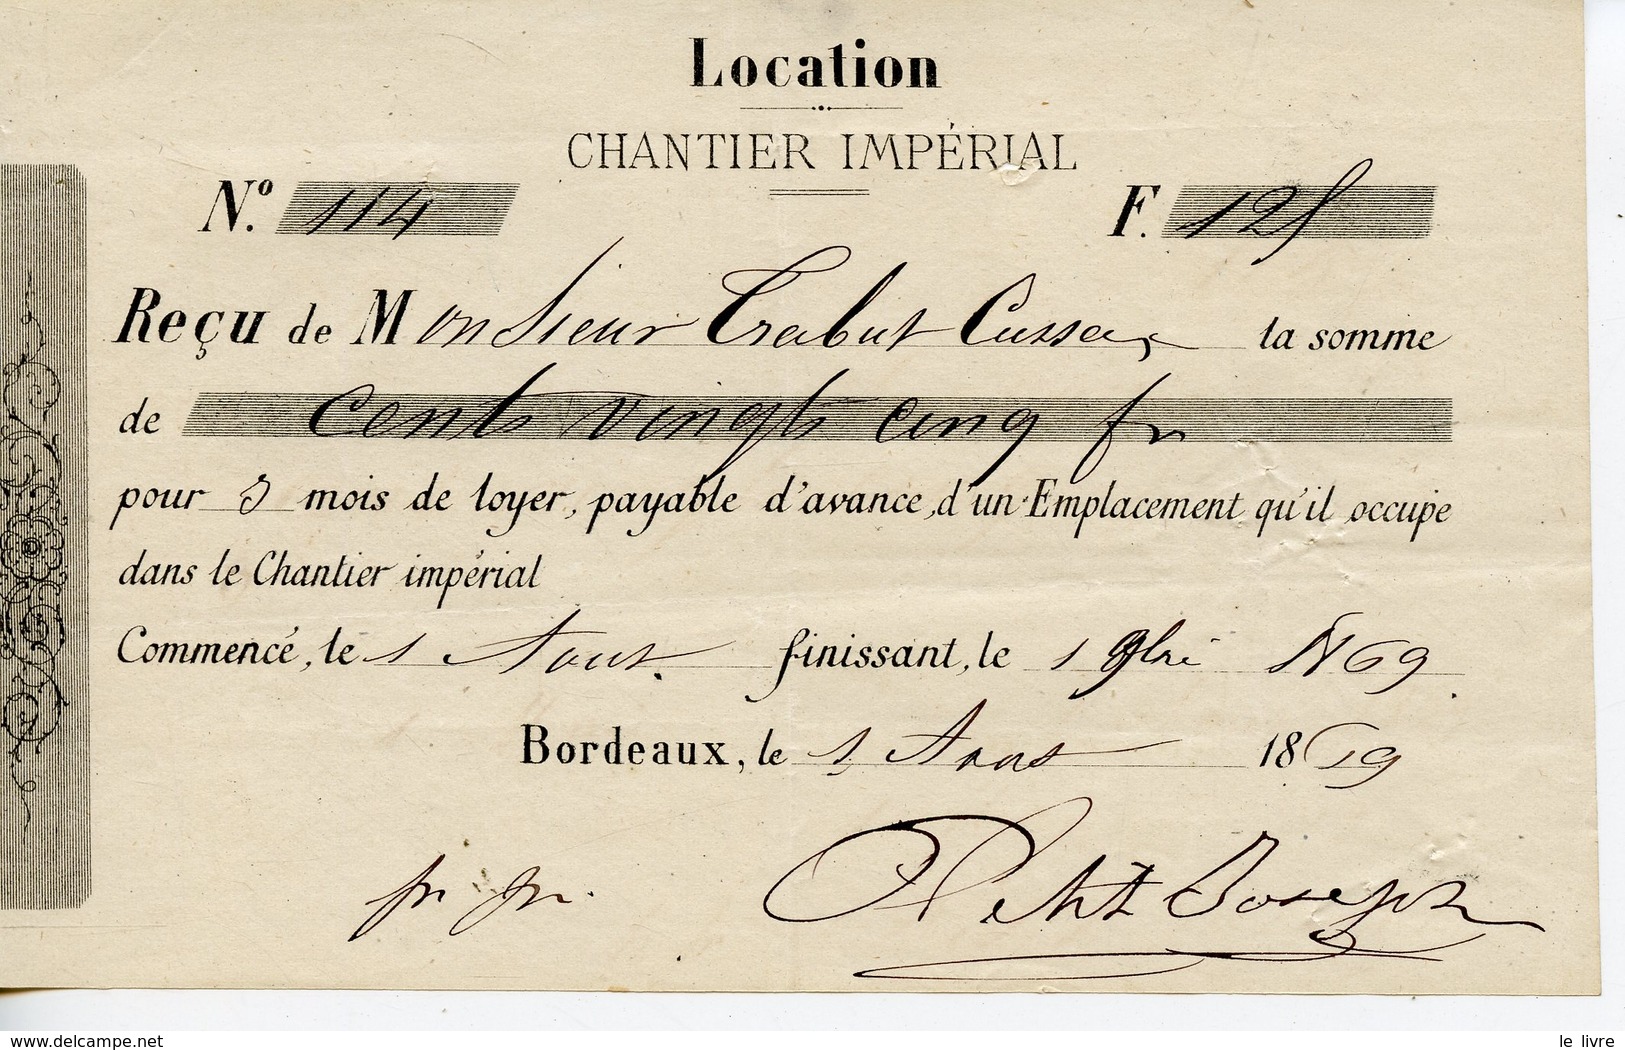 Location
CHANTIER IMPÉRIAL
N.º 114 F. 125
Reçu de Monsieur Trabut Cussac la somme
de cents vingts cinq fr
pour 3 mois de loyer, payable d'avance, d'un Emplacement qu'il occupe
dans le Chantier impérial
Commencé, le 1 Aout. finissant, le 1 9bre 1869.
Bordeaux, le 1 Aout 1869
Petit Joseph
www.delcampe.net
le livre